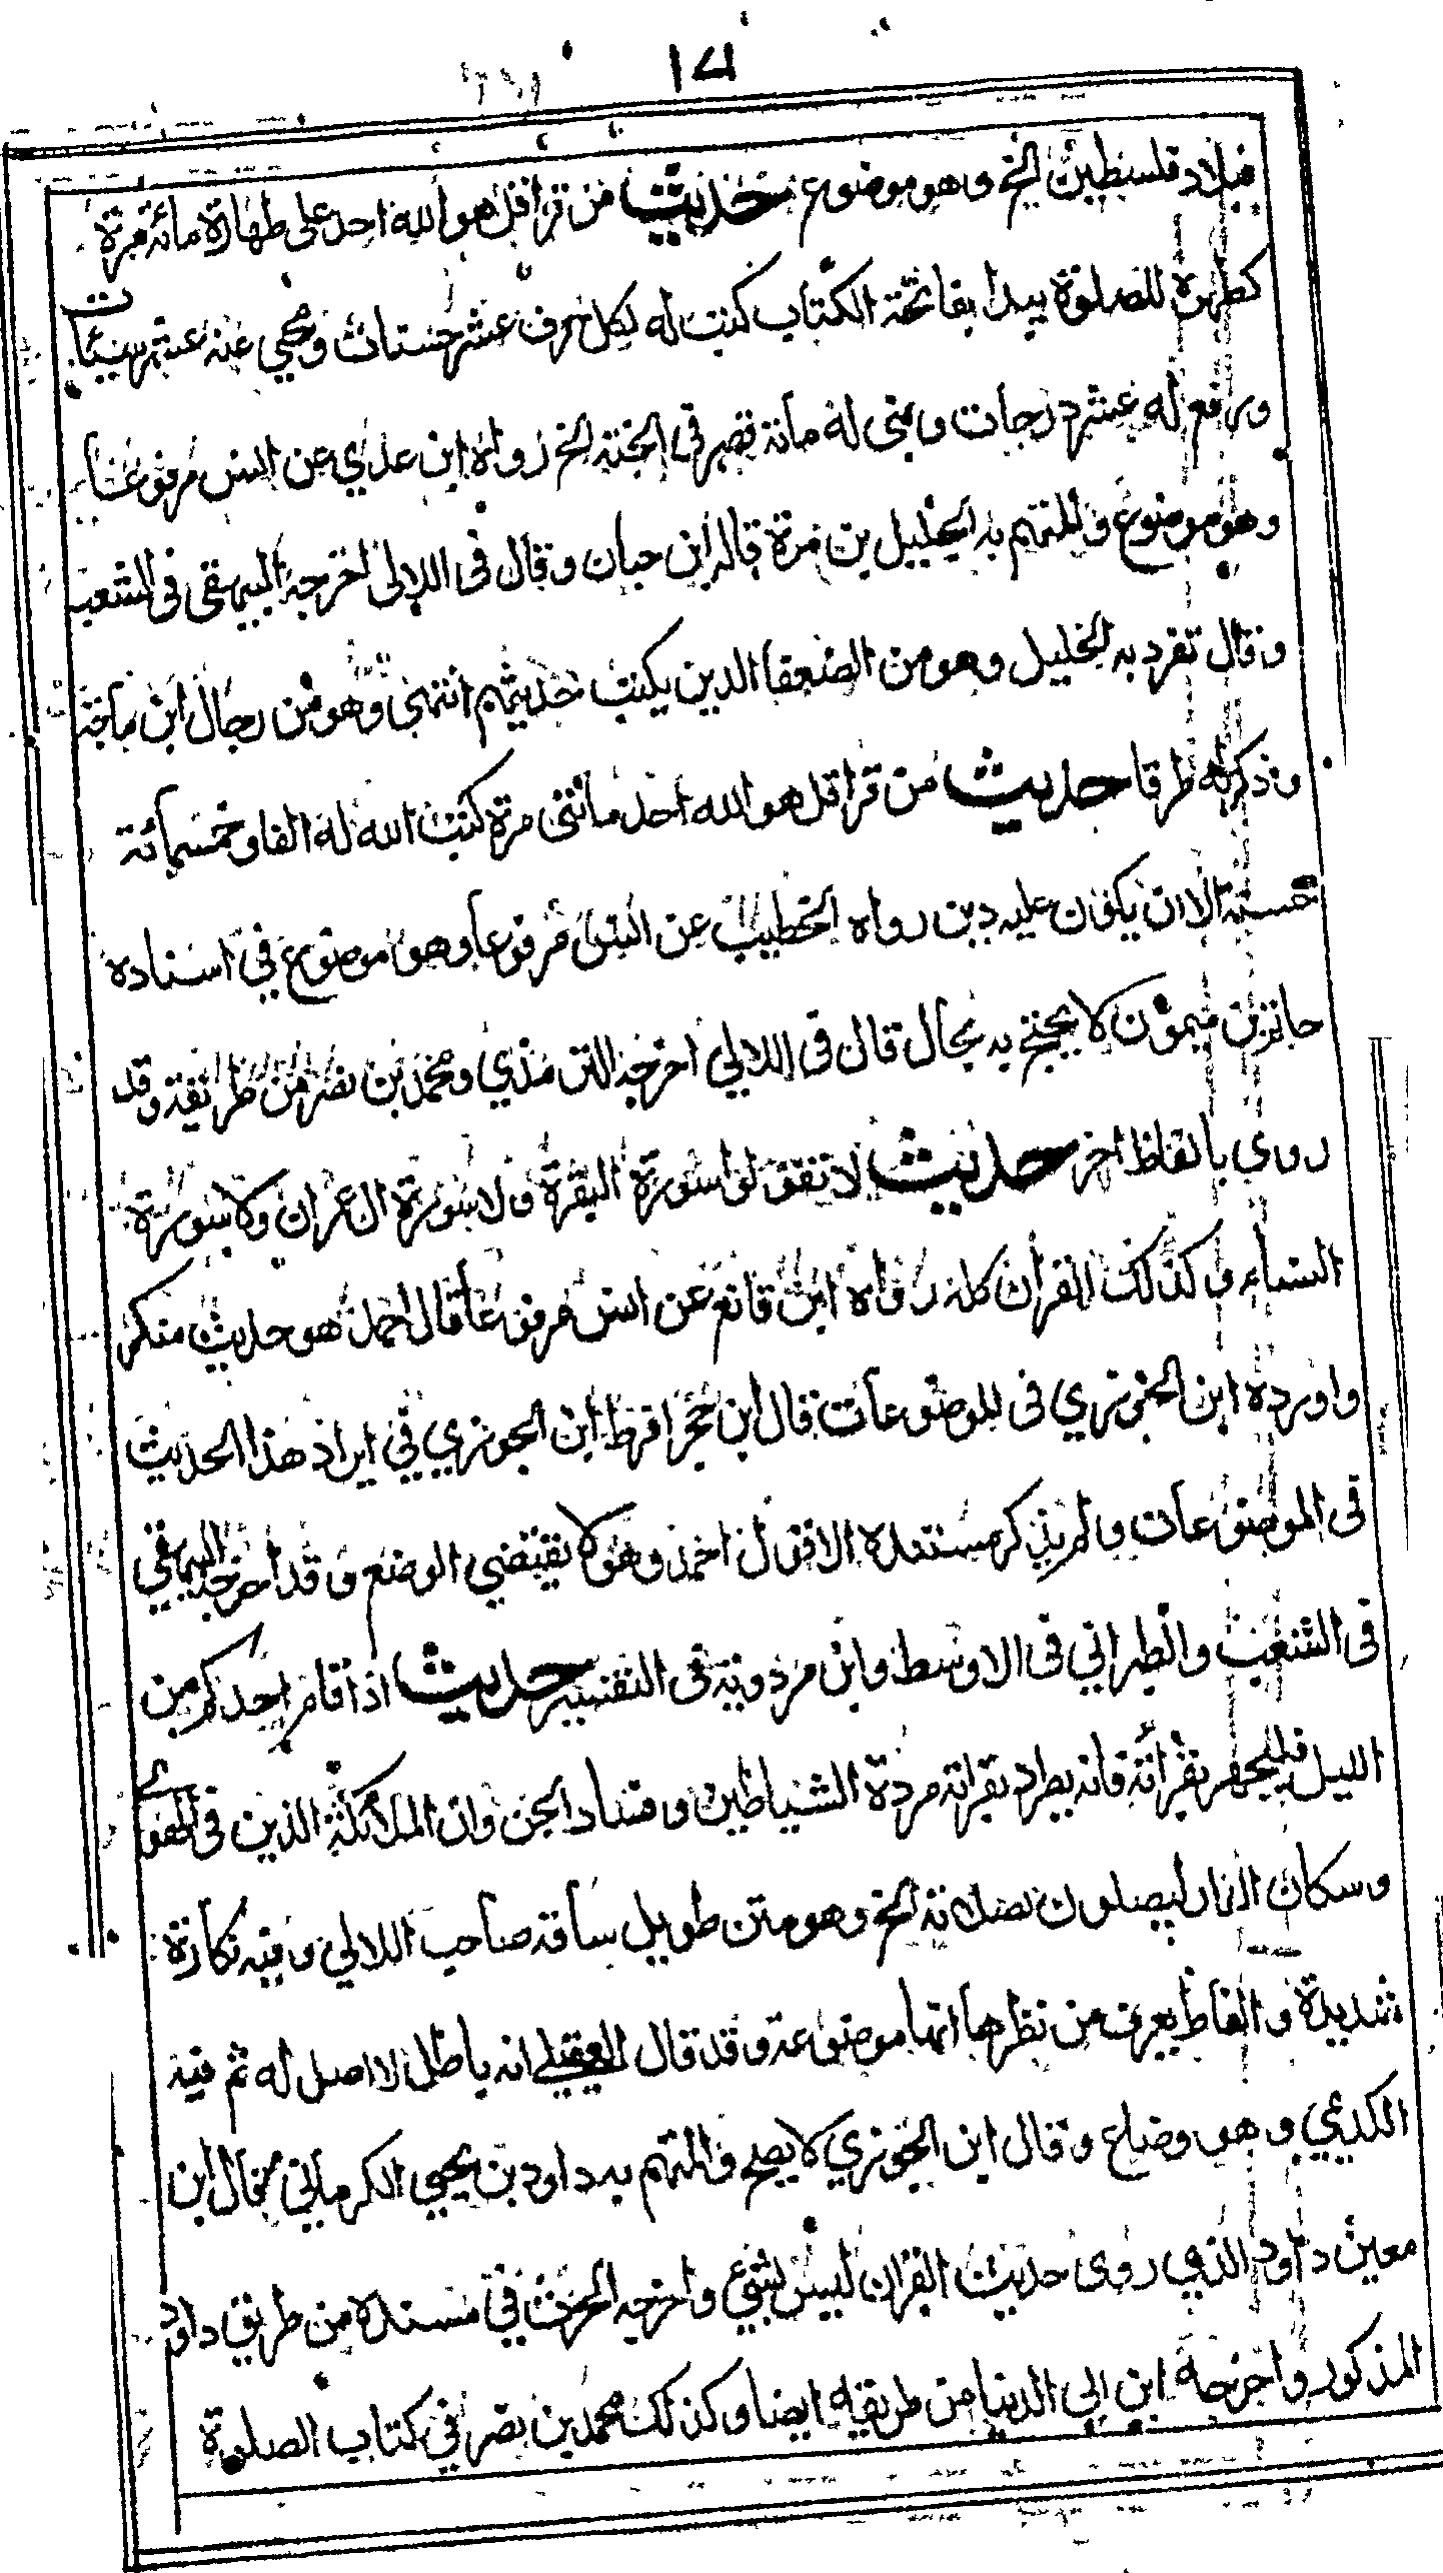 ببلاد فلسطين الخ وهو موضوع حديث من قرا قل هو الله احد على طهارة مائة مرة
كطهرة للصلوة يبدا بفاتحة الكتاب كتبت له بكل حرف عشر حسنات ومحي عنه عشر سيئات
ورفع له عشر درجات وبنى له مائة قصر فى الجنة الخ رواه ابن عدي عن انس مرفوعا
وهو موضوع والمتهم به الخليل بن مرة قاله ابن حبان وقال فى اللالى اخرجه البيهقى فى الشعب
وقال تفرد به الخليل وهو من الضعفا الدين يكتب حديثهم انتهى وهو من رجال ابن ماجة
وذكر له طرقا حديث من قرا قل هو الله احد مائتى مرة كتب الله له الفا وخمسمائة
حسنة الا ان يكون عليه دين رواه الخطيب عن انس مرفوعا وهو موضوع في اسناده
حاتم بن ميمون لا يحتج به بحال قال فى اللالي اخرجه الترمذي ومحمد بن نصر من طريقه وقد
روي بالفاظ اخر حديث لا تقولوا سورة البقرة ولا سورة ال عمران ولا سورة
النساء وكذلك القران كله رواه ابن قانع عن انس مرفوعا قال احمد هو حديث منكر
واورده ابن الجوزي فى الموضوعات قال ابن حجر افرط ابن الجوزي في ايراد هذا الحديث
فى الموضوعات ولم يذكر مستنده الا قول احمد وهو لا يقتضي الوضع وقد اخرجه البيهقي
فى الشعب والطبراني فى الاوسط وابن مردوية فى التفسير حديث اذا قام احدكم من
الليل فليجهر بقرائة فانه يطرد بقراته مردة الشياطين وفساد الجن وان الملائكة الذين فى الهوى
وسكان الدار ليصلون بصلاته الخ وهو متن طويل ساقه صاحب اللالي وفيه نكارة
شديدة والفاظ يعرف من نظرها انها موضوعة وقد قال العقيلي انه باطل لا اصل له ثم فيه
الكديمي وهو وضاع وقال ابن الجوزي لا يصح والمتهم به داود بن يحيى الكرماني قال ابن
معين داود الذي روى حديث القران ليس بشيء واخرجه الحرث في مسنده من طريق داود
المذكور واخرجه ابن ابي الدنيا من طريقه ايضا وكذلك محمد بن نصر في كتاب الصلوة